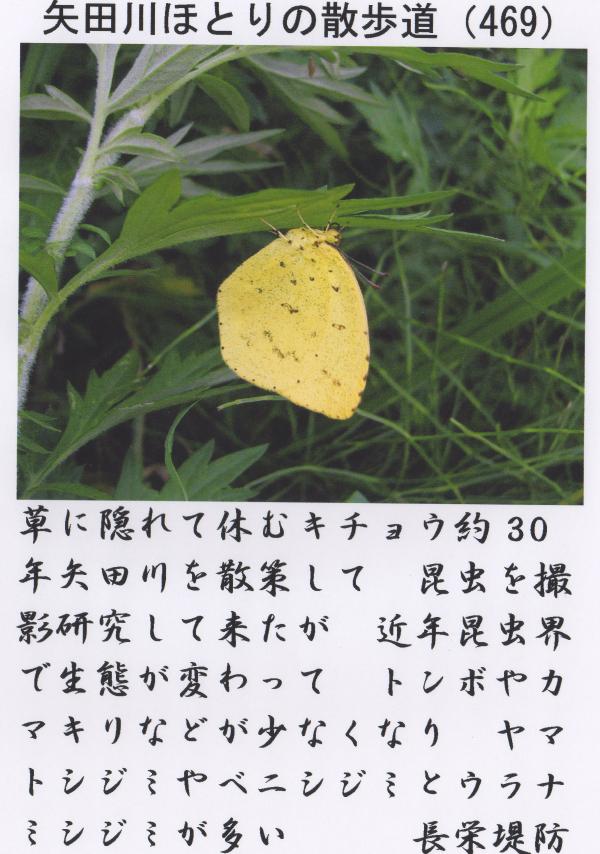 矢田川ほとりの散歩道（469）
草に隠れて休むキチョウ約30
年矢田川を散策して　昆虫を撮
影研究して来たが　近年昆虫界
で生態が変わって　トンボやカ
マキリなどが少なくなり　ヤマ
トシジミやベニシジミとウラナ
ミシジミが多い　　　長栄堤防